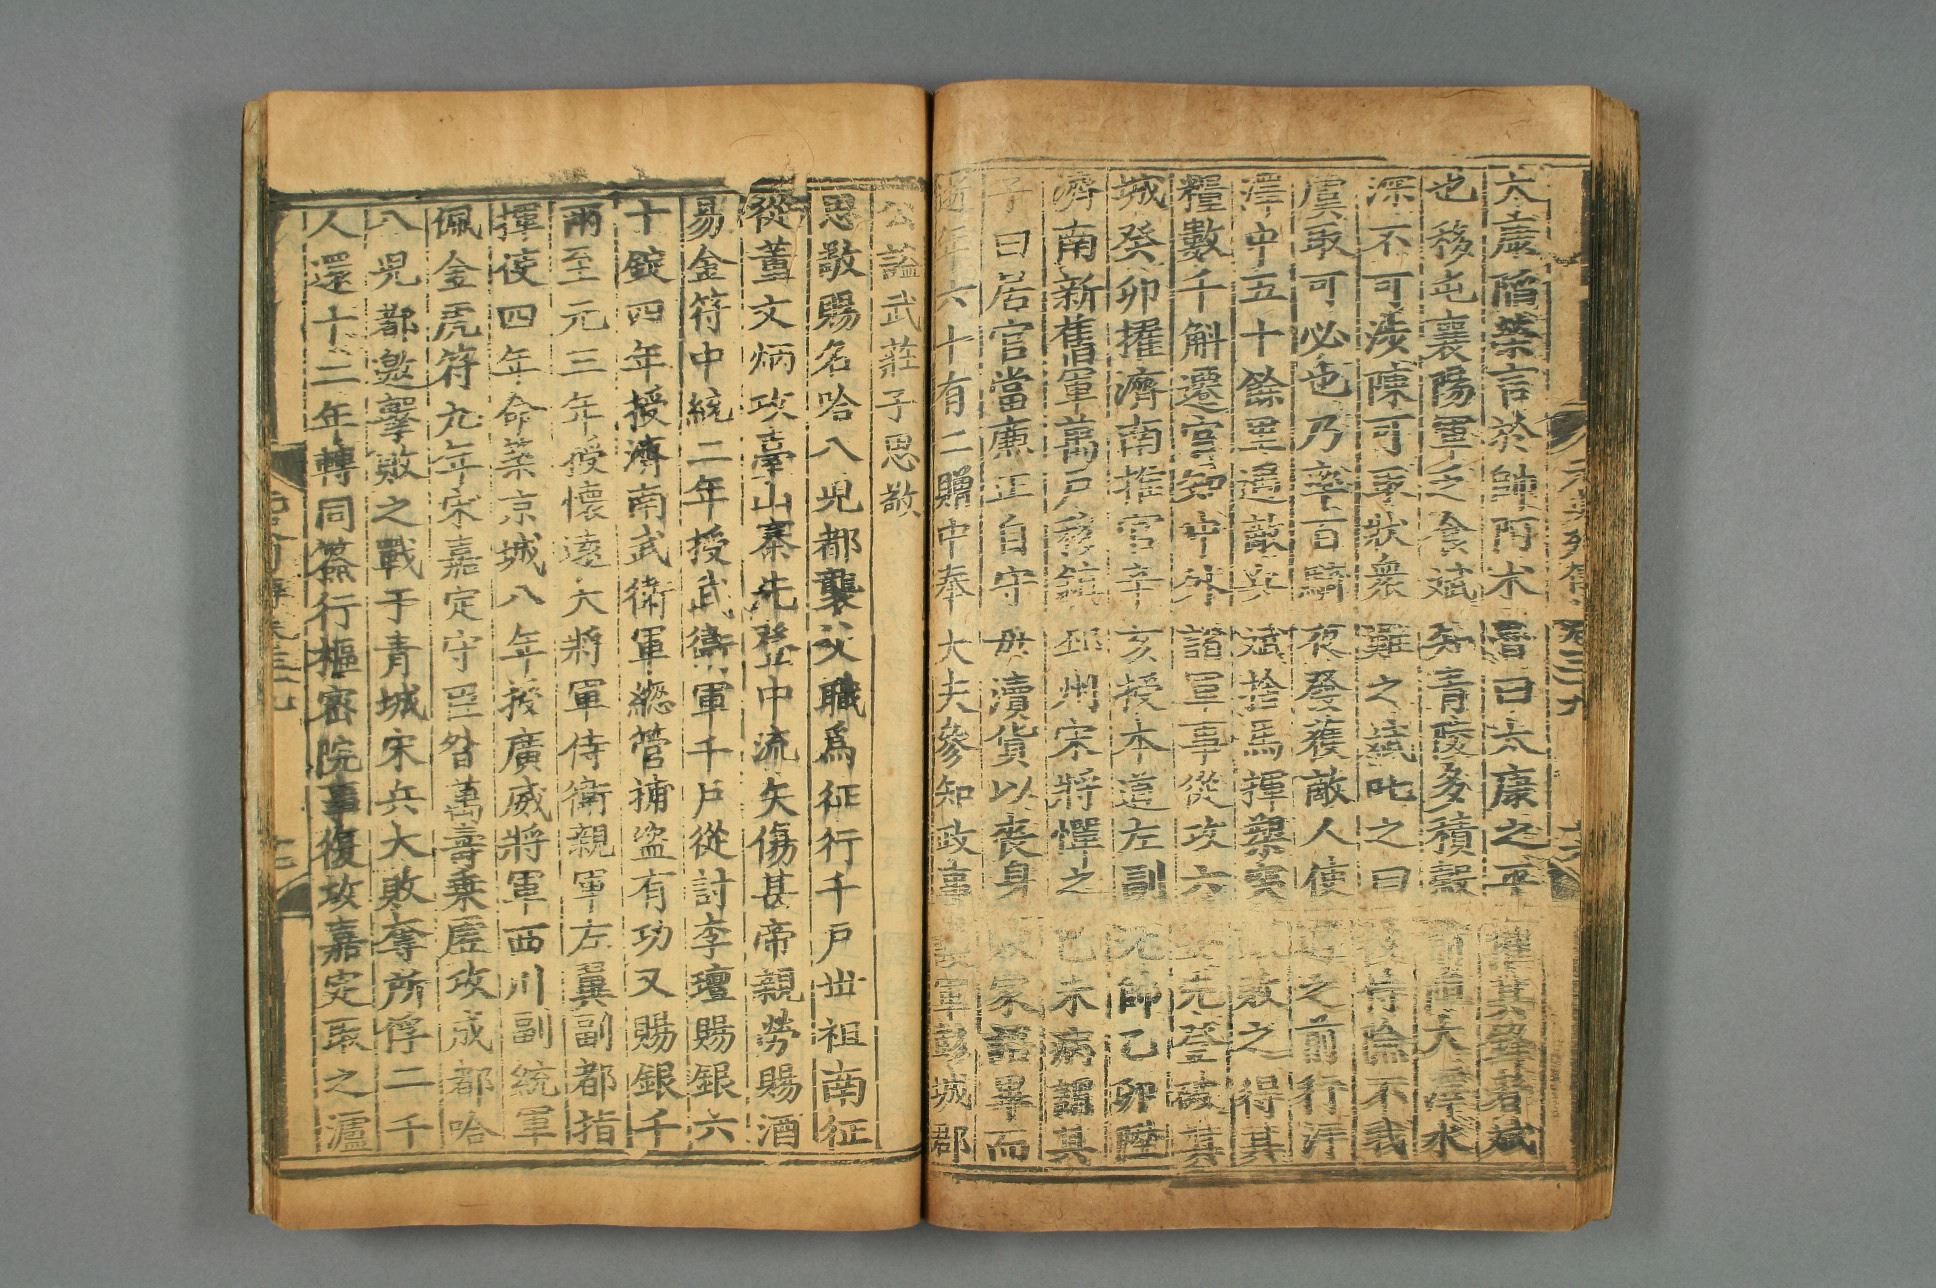 太康陷榮言於帥阿木魯曰太康之平
也移屯襄陽軍乏食斌知青陵多積穀前阻大澤水
深不可涉陳可取狀衆難之斌叱之曰
虞取可必也乃率百騎夜發獲敵人使之前行
澤中五十餘里遇敵兵斌捨馬揮槊突之得其
糧數千斛遷官知中外諸軍事從攻六安先登破其
城癸卯擢濟南推官辛亥授本道左副元帥己卯陞
濟南新舊軍萬戶移鎮邳州宋將憚之己未病謂其
子曰居官當廉正自守毋瀆貨以喪身家語畢而
逝年六十有二贈中奉大夫參知政事軍彭城郡
公謚武莊子思敬
思敬賜名哈八兒都襲父職爲征行千戶世祖南征
從董文炳攻臺山寨先登中流矢傷甚帝親勞賜酒
易金符中統二年授武衛軍千戶從討李璮賜銀六
十錠四年授濟南武衛軍總管捕盜有功又賜銀千
兩至元三年授懷遠大將軍侍衛親軍左翼副都指
揮使四年命築京城八年授廣威將軍西川副統軍
佩金虎符九年宋嘉定守臣昝萬壽乗虛攻成都哈
八兒都邀擊敗之戰于青城宋兵大敗奪所俘二千
人還十二年轉同簽行樞密院事復攻嘉定取之瀘